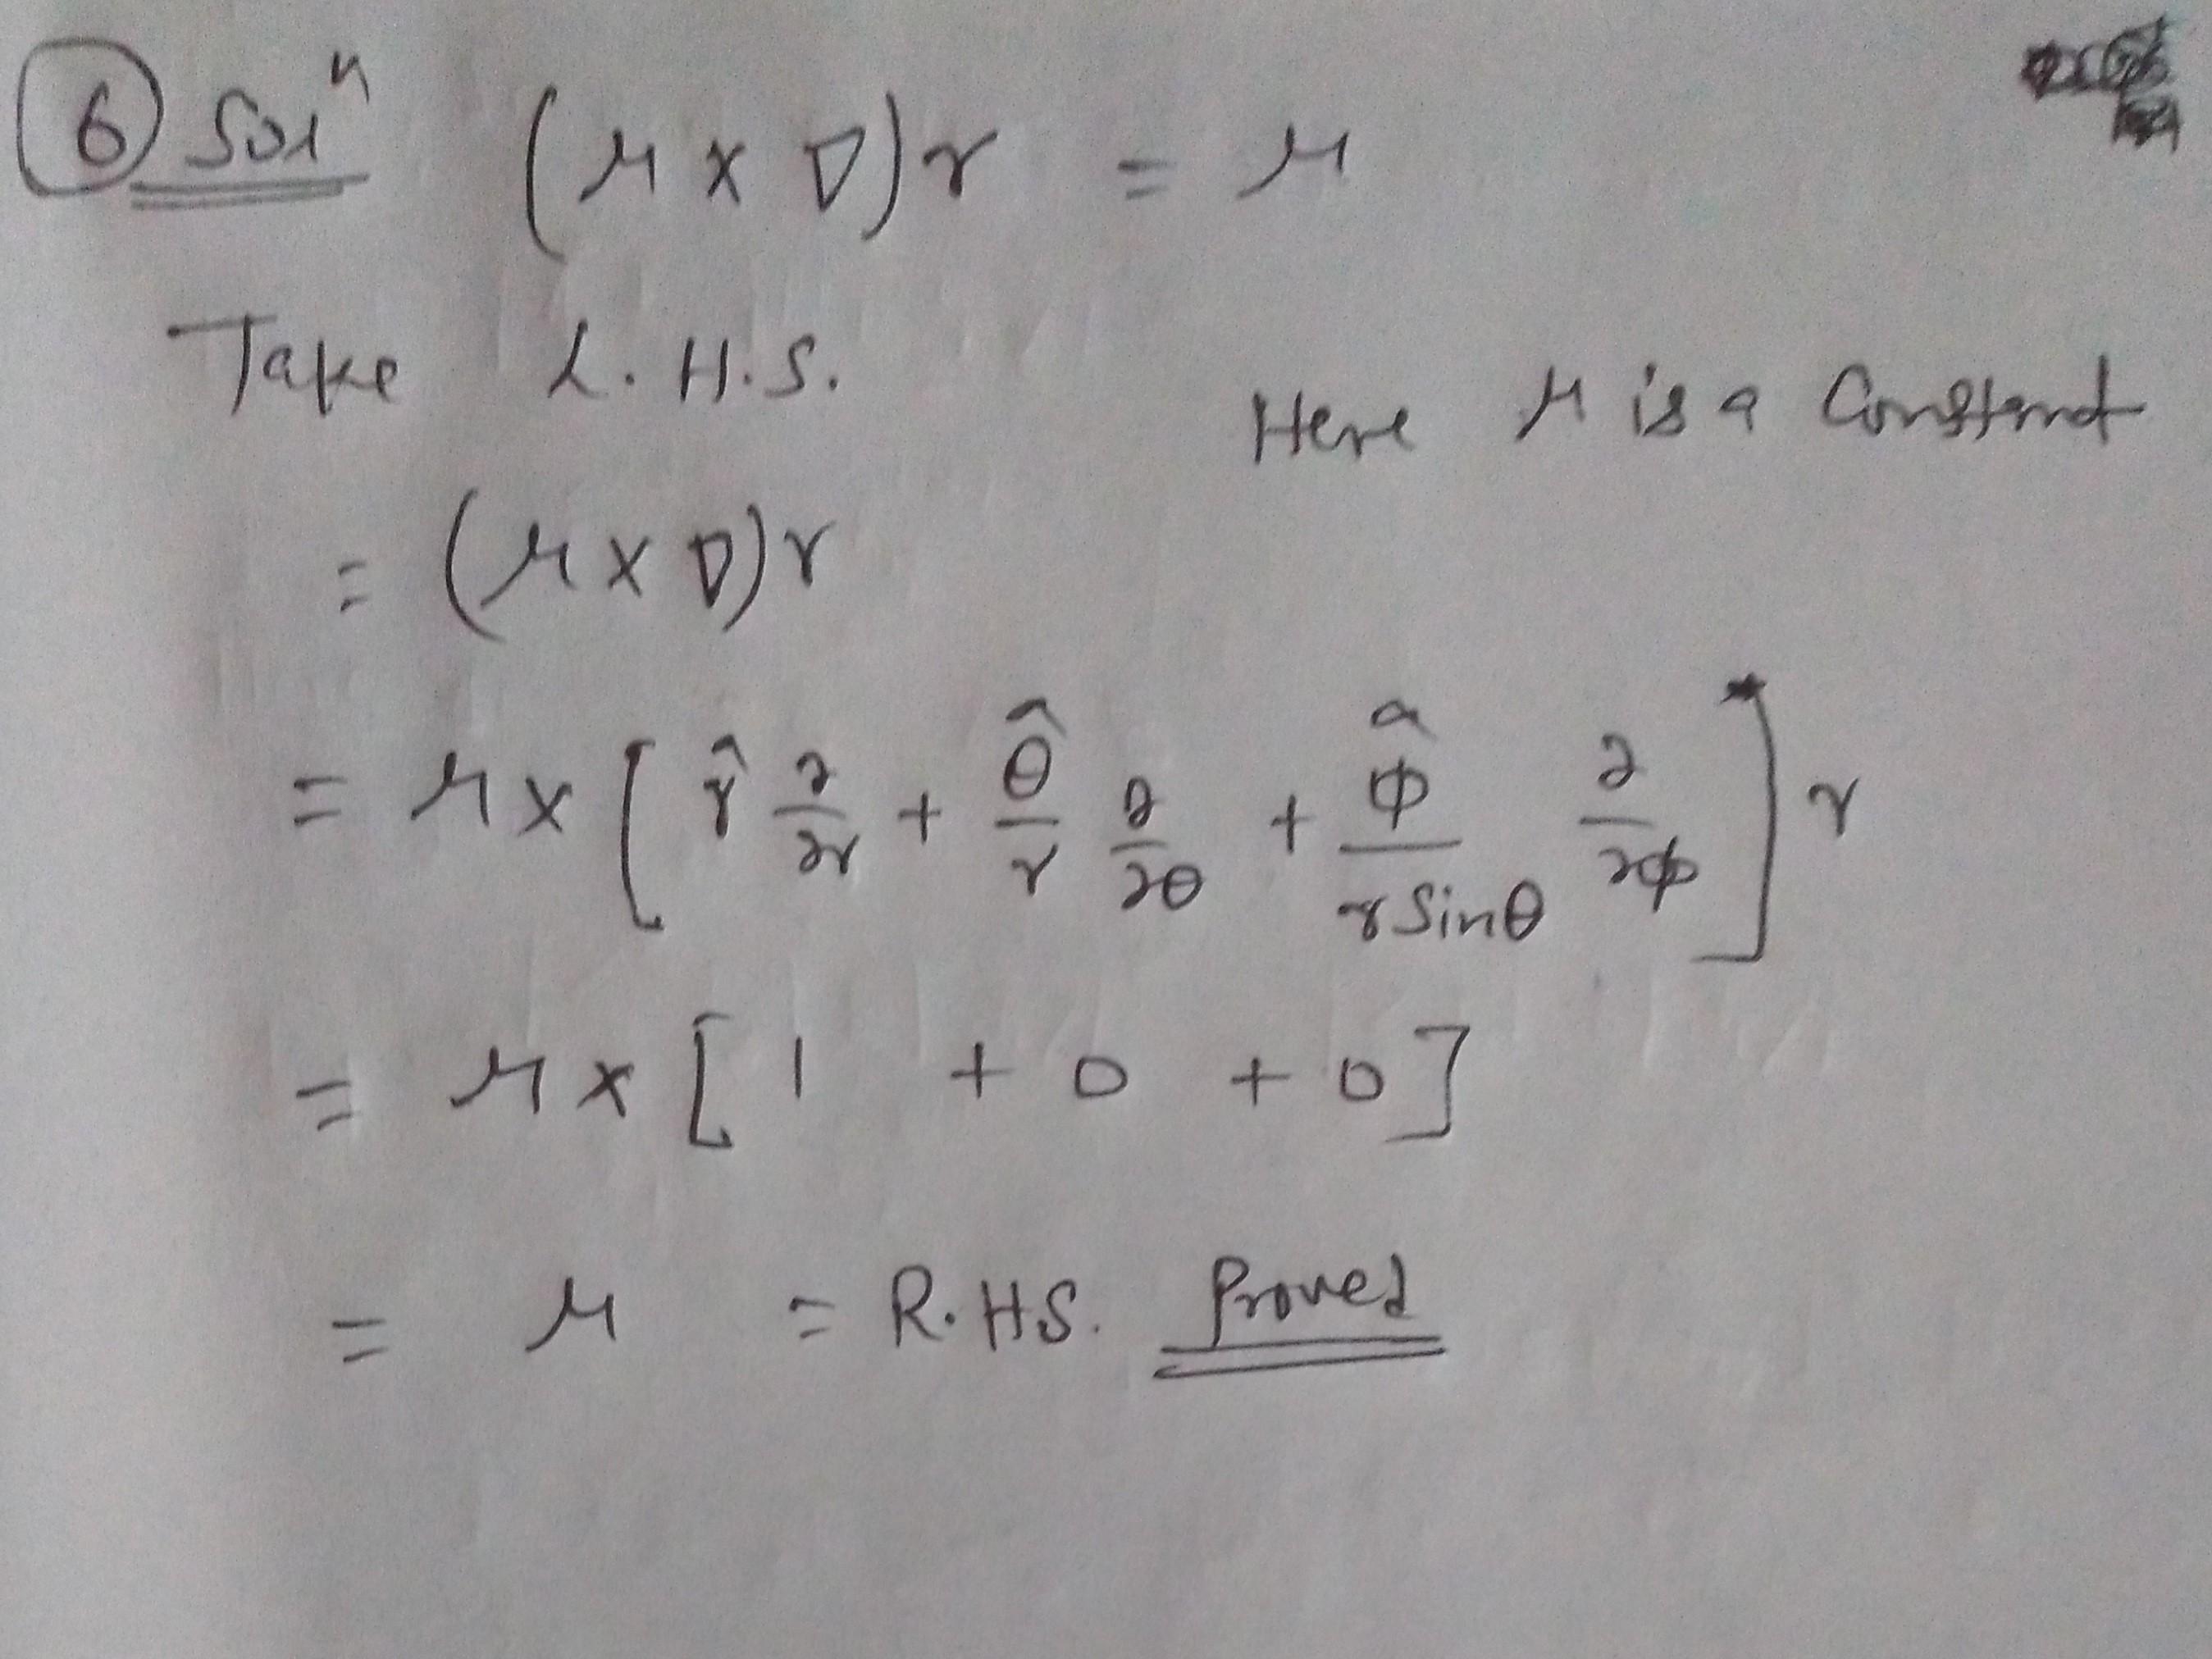 ⑥ Solⁿ (μ × ∇)r = μ
Take L.H.S.
Here μ is a Constant
= (μ × ∇)r
= μ × [ r̂ ∂/∂r + θ̂/r ∂/∂θ + φ̂/(r sinθ) ∂/∂φ ] r
= μ × [ 1 + 0 + 0 ]
= μ = R.H.S. Proved